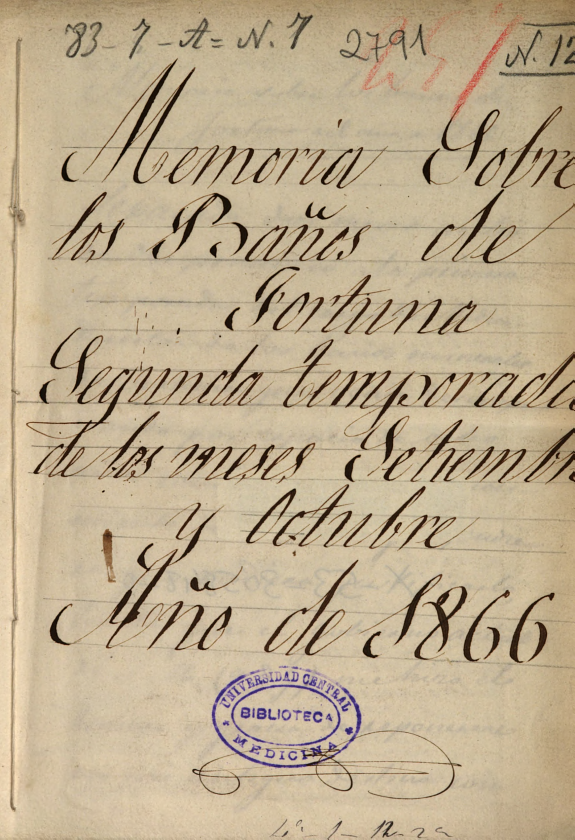 83-7-A=N.7 2791 N. 12
Memoria Sobre
los Baños de
Fortuna
Segunda temporada
de los meses Setiembre
y Octubre
Año de 1866
UNIVERSIDAD CENTRAL
BIBLIOTECA
MEDICINA